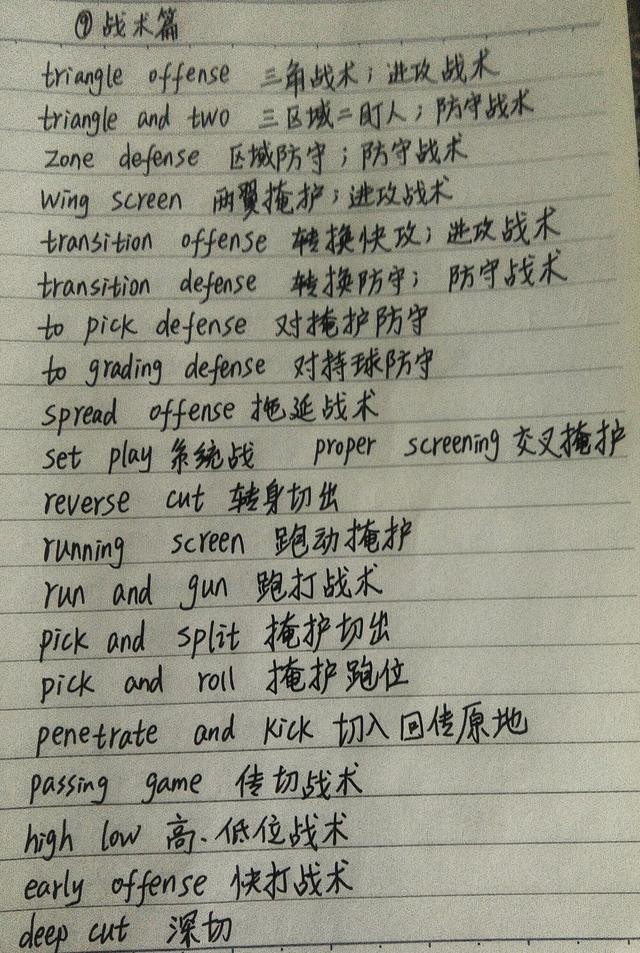 ⑨战术篇
triangle offense 三角战术；进攻战术
triangle and two 三区域二盯人；防守战术
zone defense 区域防守；防守战术
wing screen 两翼掩护；进攻战术
transition offense 转换快攻；进攻战术
transition defense 转换防守； 防守战术
to pick defense 对掩护防守
to grading defense 对持球防守
spread offense 拖延战术
set play 系统战 proper screening 交叉掩护
reverse cut 转身切出
running screen 跑动掩护
run and gun 跑打战术
pick and split 掩护切出
pick and roll 掩护跑位
penetrate and kick 切入回传原地
passing game 传切战术
high low 高.低位战术
early offense 快打战术
deep cut 深切